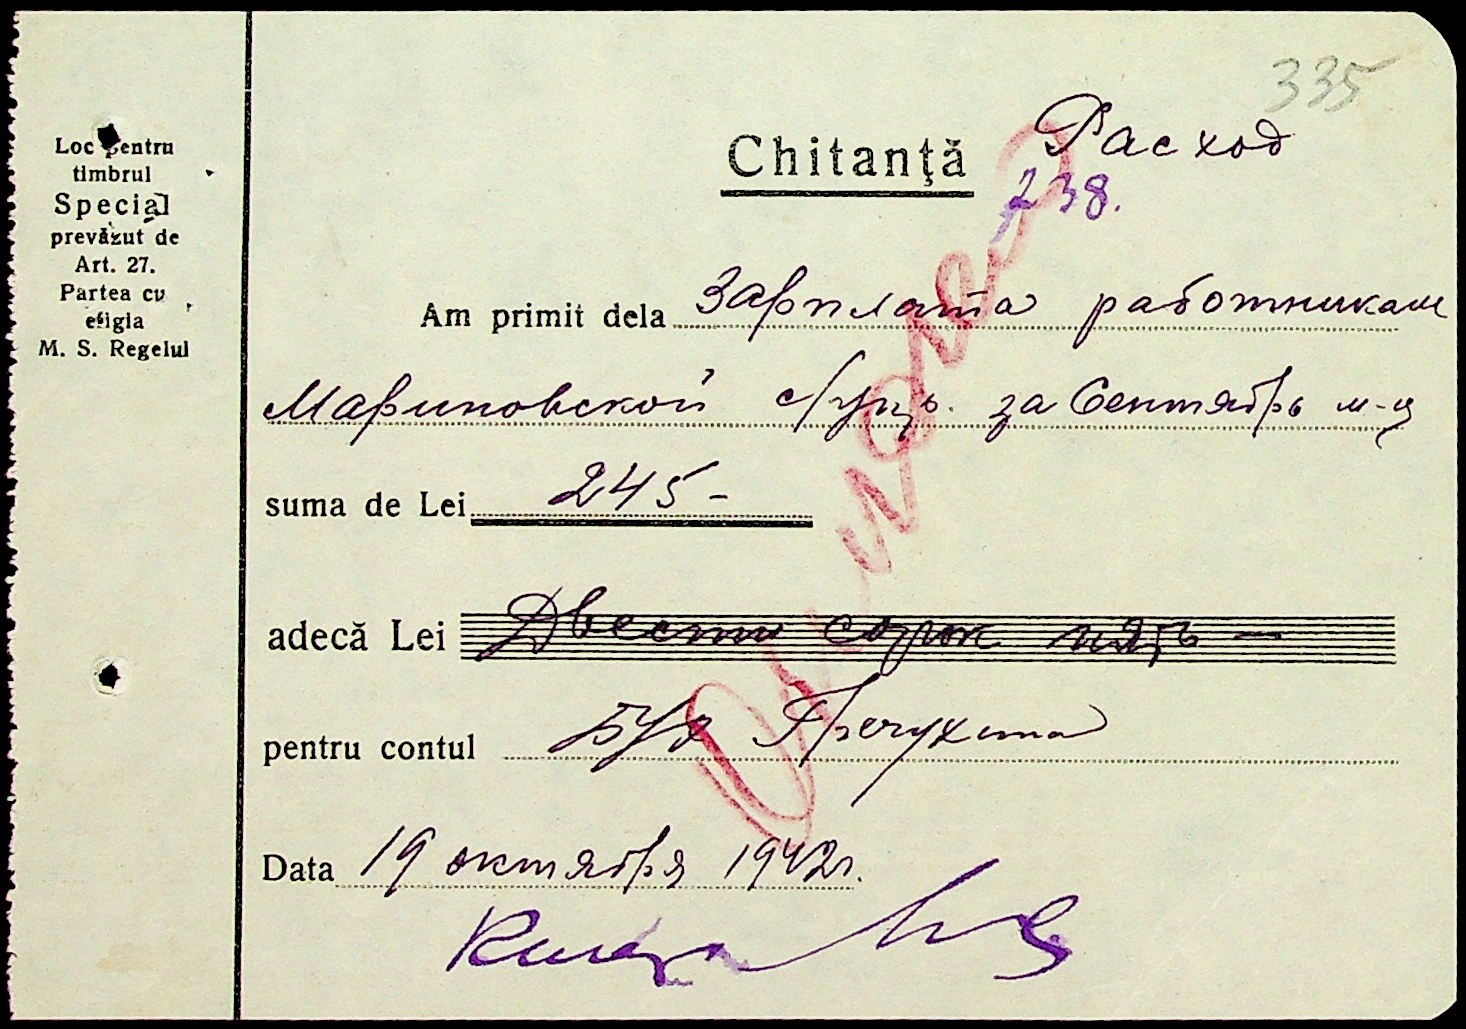 335
Loc pentru
timbrul
Special
prevăzut de
Art. 27.
Partea cu
efigia
M. S. Regelui
Chitanţă
Расход
738.
Am primit dela Зарплата работникам
Мариновской за Сентябрь м-ц
suma de Lei 245-
adecă Lei Двести сорок пять —
pentru contul
Data 19 октября 1942г.
Оплачено